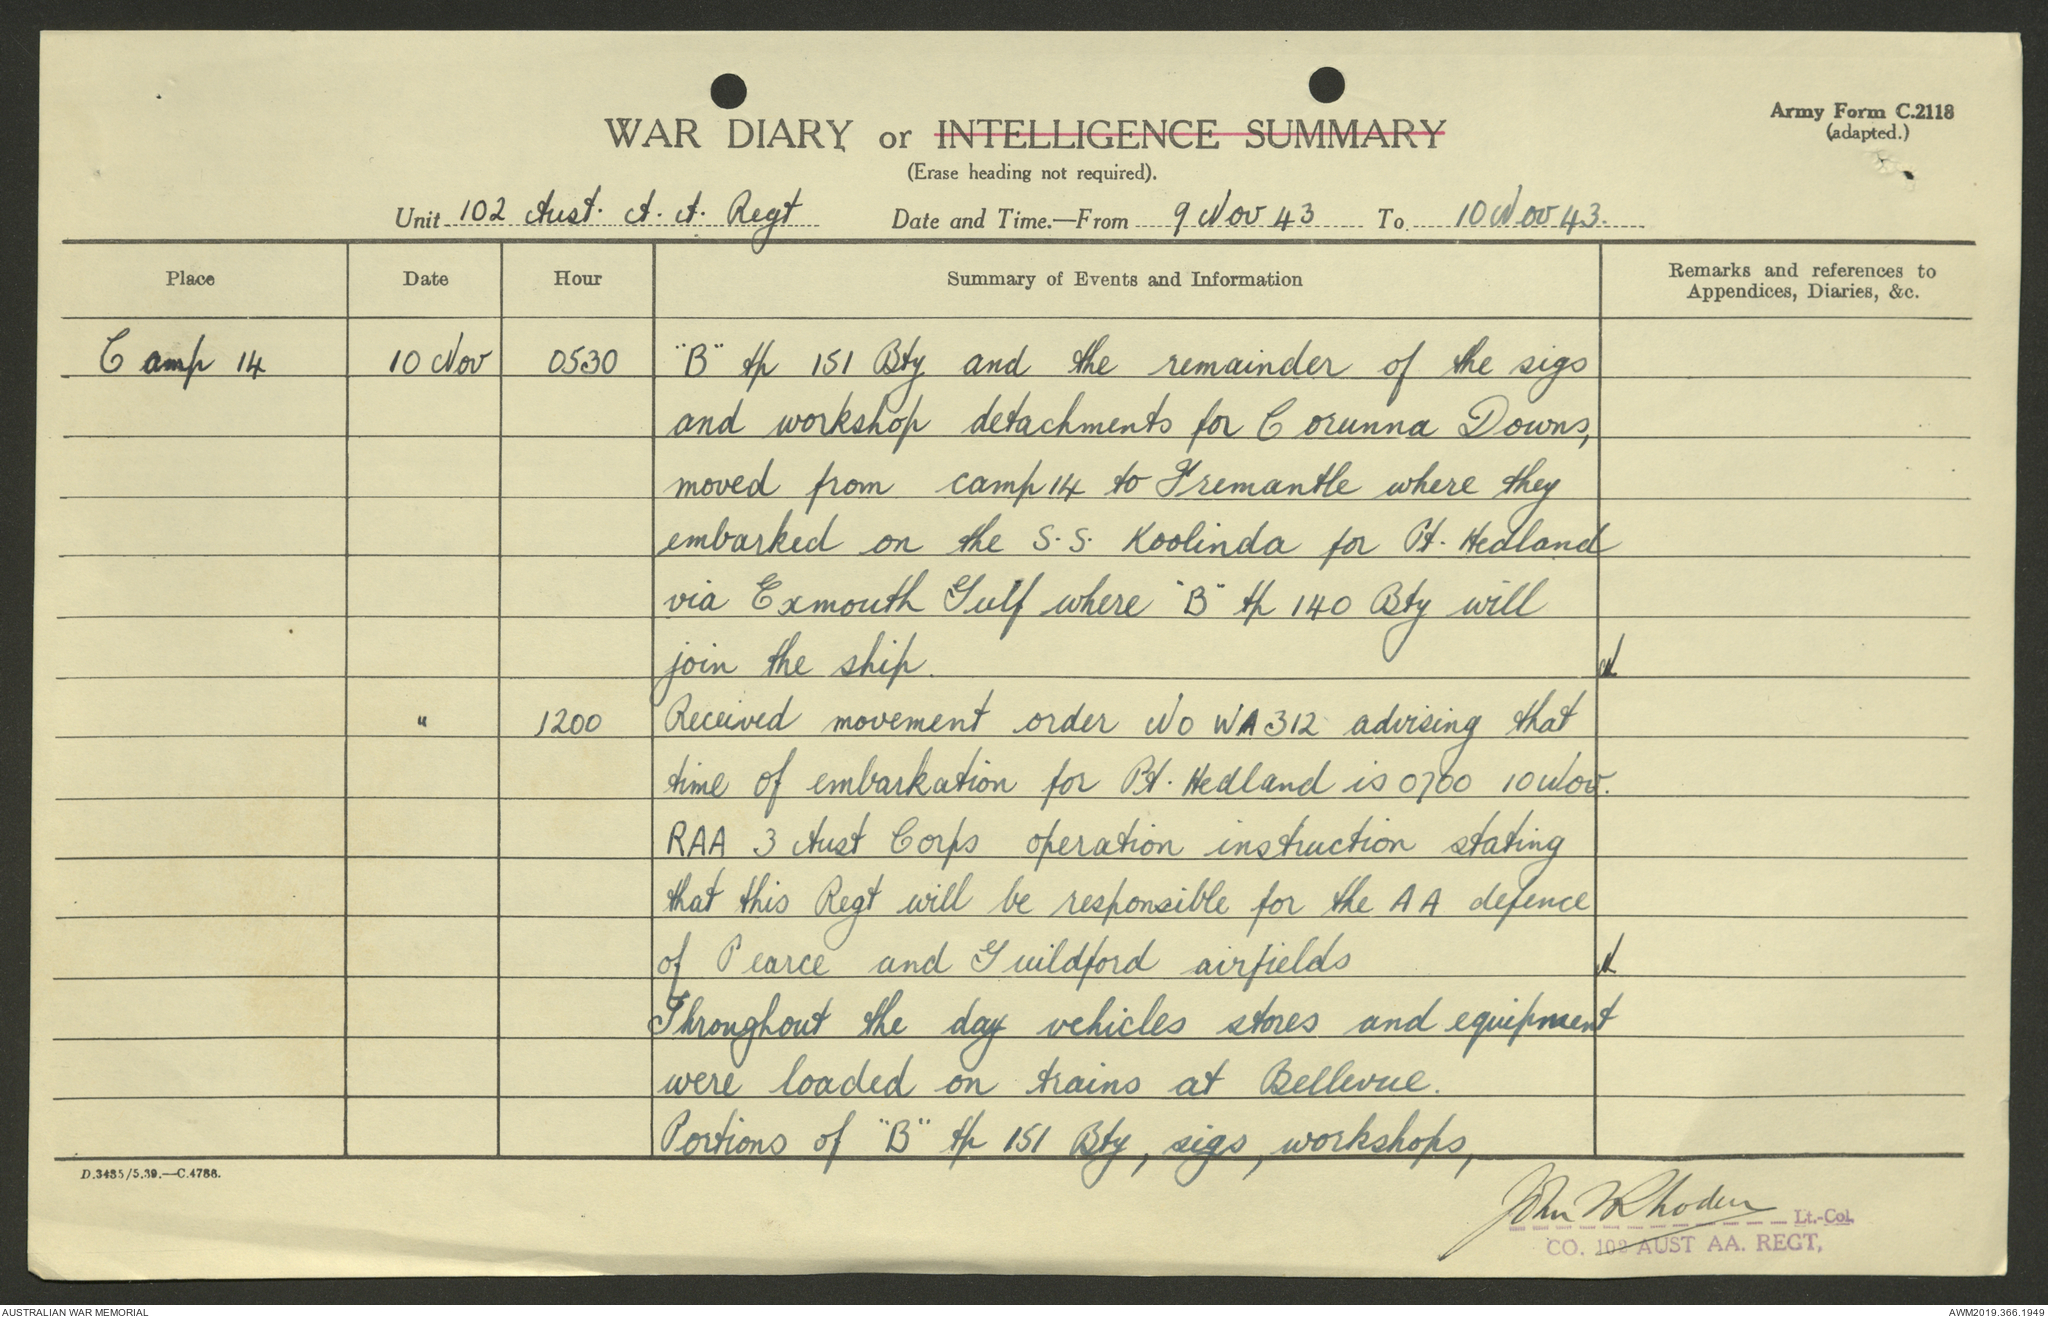 Army Form C.2118
(adapted.)
WAR DIARY or INTELLIGENCE SUMMARY
(Erase heading not required).
Unit 102 Aust. A. A. Regt Date and Time.—From 9 Nov 43 To 10 Nov 43.
Place Date Hour Summary of Events and Information Remarks and references to Appendices, Diaries, &c.
Camp 14 10 Nov 0530 "B" tp 151 Bty and the remainder of the sigs
and workshop detachments for Corunna Downs,
moved from camp 14 to Fremantle where they
embarked on the S.S. Koolinda for Pt. Hedland
via Exmouth Gulf where "B" tp 140 Bty will
join the ship.
" 1200 Received movement order No WA 312 advising that
time of embarkation for Pt. Hedland is 0700 10 Nov.
RAA 3 Aust Corps operation instruction stating
that this Regt will be responsible for the AA defence
of Pearce and Guildford airfields
Throughout the day vehicles stores and equipment
were loaded on trains at Bellevue.
Portions of "B" tp 151 Bty, sigs, workshops,
D.3435/5.39.—C.4788.
John W Rhoden Lt.-Col.
CO. 102 AUST AA. REGT,
AUSTRALIAN WAR MEMORIAL
AWM2019.366.1949